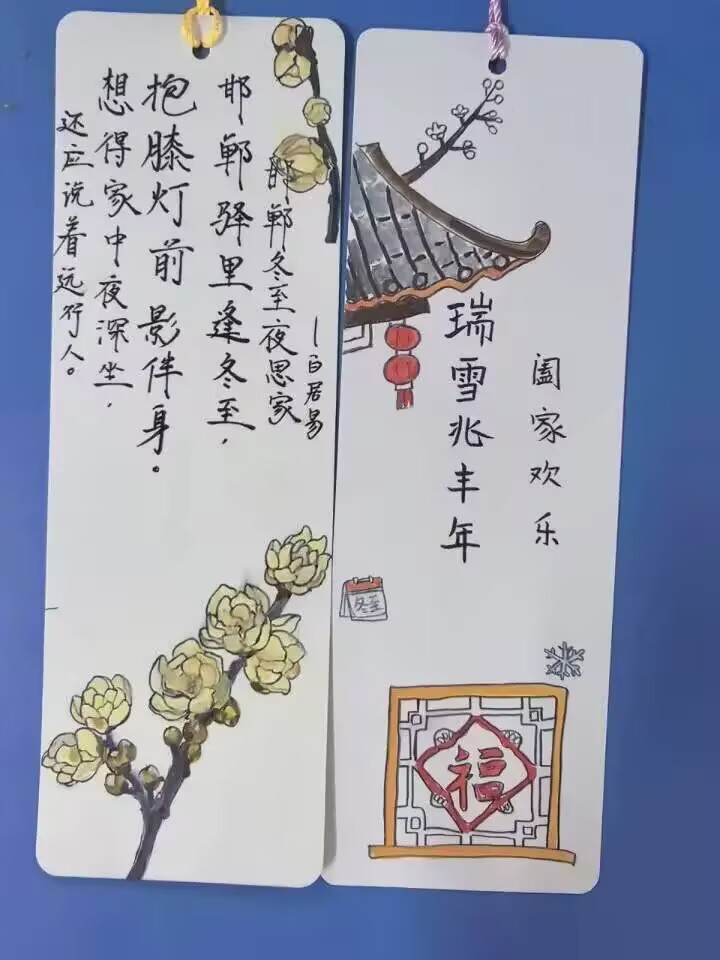 邯郸冬至夜思家
—白居易
邯郸驿里逢冬至，
抱膝灯前影伴身。
想得家中夜深坐，
还应说着远行人。
阖家欢乐
瑞雪兆丰年
冬至
福